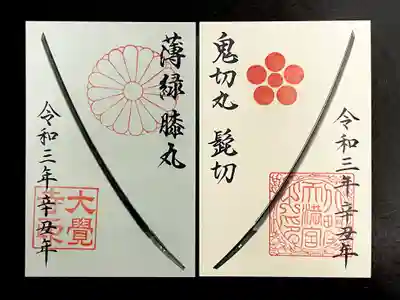 薄緑 膝丸
令和三年 辛丑年
大覺
鬼切丸 髭切
令和三年 辛丑年
天満宮